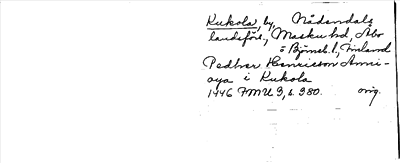 Kukola, by, Nådendals
landsförs., Masku hd, Åbo
o Björneb. l, Finland
Pedher Henricson Anni-
oya i Kukola
1446 FMU 3, s. 380. orig.